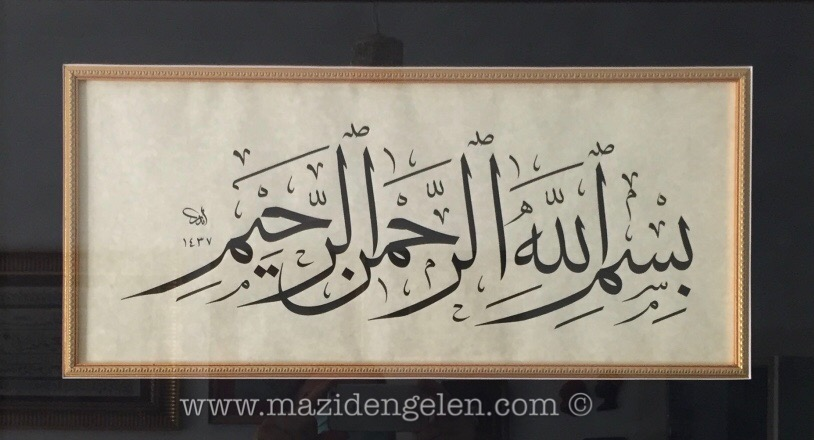 بِسْمِ اللّٰهِ الرَّحْمٰنِ الرَّحِيْمِ
١٤٣٧
www.mazidengelen.com ©